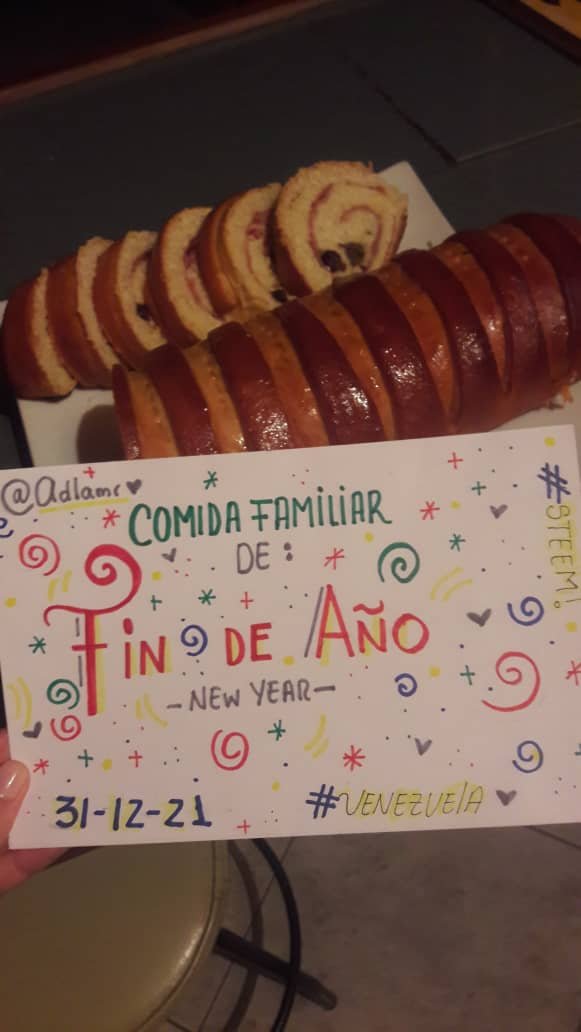 @adlamc
COMIDA FAMILIAR
DE:
FIN DE AÑO
-NEW YEAR-
31-12-21
#VENEZUELA
#STEEMI